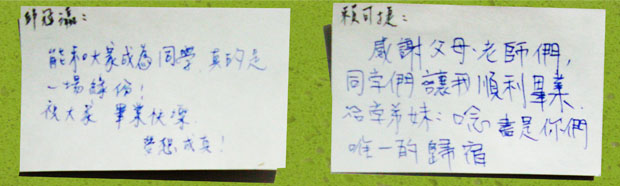 邱冠瀛：
能和大家成為同學，真的是
一場緣份！
祝大家 畢業快樂
夢想成真！
賴可捷：
感謝父母、老師們，
同學們讓我順利畢業.
給學弟妹：唸書是你們
唯一的歸宿